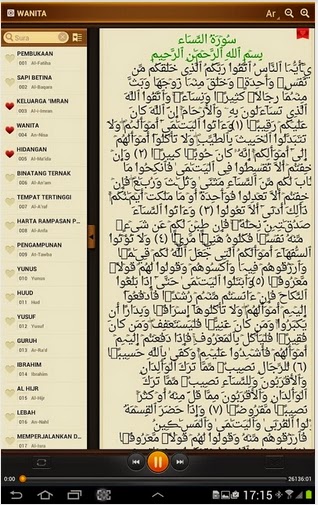 WANITA
Ar
Sura
PEMBUKAAN
001 Al-Fatiha
SAPI BETINA
002 Al-Baqara
KELUARGA 'IMRAN
003 Al-i-Imran
WANITA
004 An-Nisa
HIDANGAN
005 Al-Ma'ida
BINATANG TERNAK
006 Al-An'am
TEMPAT TERTINGGI
007 Al-A'raf
HARTA RAMPASAN P...
008 Al-Anfa
PENGAMPUNAN
009 At-Tawba
YUNUS
010 Yunus
HUUD
011 Hud
YUSUF
012 Yusuf
GURUH
013 Ar-Ra'd
IBRAHIM
014 Ibrahim
AL HIJR
015 Al-Hijr
LEBAH
016 An-Nahl
MEMPERJALANKAN D...
017 Al-Isra
سُورَةُ النِّسَاء
بِسْمِ اللهِ الرَّحْمٰنِ الرَّحِيْمِ
يَٰٓأَيُّهَا ٱلنَّاسُ ٱتَّقُوا۟ رَبَّكُمُ ٱلَّذِى خَلَقَكُم مِّن
نَّفْسٍ وَٰحِدَةٍ وَخَلَقَ مِنْهَا زَوْجَهَا وَبَثَّ
مِنْهُمَا رِجَالًا كَثِيرًا وَنِسَآءً وَٱتَّقُوا۟ ٱللَّهَ
ٱلَّذِى تَسَآءَلُونَ بِهِۦ وَٱلْأَرْحَامَ إِنَّ ٱللَّهَ كَانَ
عَلَيْكُمْ رَقِيبًا (١) وَءَاتُوا۟ ٱلْيَتَٰمَىٰٓ أَمْوَٰلَهُمْ وَلَا
تَتَبَدَّلُوا۟ ٱلْخَبِيثَ بِٱلطَّيِّبِ وَلَا تَأْكُلُوٓا۟ أَمْوَٰلَهُمْ
إِلَىٰٓ أَمْوَٰلِكُمْ إِنَّهُۥ كَانَ حُوبًا كَبِيرًا (٢) وَإِنْ
خِفْتُمْ أَلَّا تُقْسِطُوا۟ فِى ٱلْيَتَٰمَىٰ فَٱنكِحُوا۟ مَا
طَابَ لَكُم مِّنَ ٱلنِّسَآءِ مَثْنَىٰ وَثُلَٰثَ وَرُبَٰعَ فَإِنْ
خِفْتُمْ أَلَّا تَعْدِلُوا۟ فَوَٰحِدَةً أَوْ مَا مَلَكَتْ أَيْمَٰنُكُمْ
ذَٰلِكَ أَدْنَىٰٓ أَلَّا تَعُولُوا۟ (٣) وَءَاتُوا۟ ٱلنِّسَآءَ
صَدُقَٰتِهِنَّ نِحْلَةً فَإِن طِبْنَ لَكُمْ عَن شَىْءٍ
مِّنْهُ نَفْسًا فَكُلُوهُ هَنِيٓـًٔا مَّرِيٓـًٔا (٤) وَلَا تُؤْتُوا۟
ٱلسُّفَهَآءَ أَمْوَٰلَكُمُ ٱلَّتِى جَعَلَ ٱللَّهُ لَكُمْ قِيَٰمًا
وَٱرْزُقُوهُمْ فِيهَا وَٱكْسُوهُمْ وَقُولُوا۟ لَهُمْ قَوْلًا
مَّعْرُوفًا (٥) وَٱبْتَلُوا۟ ٱلْيَتَٰمَىٰ حَتَّىٰٓ إِذَا بَلَغُوا۟
ٱلنِّكَاحَ فَإِنْ ءَانَسْتُم مِّنْهُمْ رُشْدًا فَٱدْفَعُوٓا۟
إِلَيْهِمْ أَمْوَٰلَهُمْ وَلَا تَأْكُلُوهَآ إِسْرَافًا وَبِدَارًا أَن
يَكْبَرُوا۟ وَمَن كَانَ غَنِيًّا فَلْيَسْتَعْفِفْ وَمَن كَانَ
فَقِيرًا فَلْيَأْكُلْ بِٱلْمَعْرُوفِ فَإِذَا دَفَعْتُمْ إِلَيْهِمْ
أَمْوَٰلَهُمْ فَأَشْهِدُوا۟ عَلَيْهِمْ وَكَفَىٰ بِٱللَّهِ حَسِيبًا
(٦) لِّلرِّجَالِ نَصِيبٌ مِّمَّا تَرَكَ ٱلْوَٰلِدَانِ
وَٱلْأَقْرَبُونَ وَلِلنِّسَآءِ نَصِيبٌ مِّمَّا تَرَكَ
ٱلْوَٰلِدَانِ وَٱلْأَقْرَبُونَ مِمَّا قَلَّ مِنْهُ أَوْ كَثُرَ
نَصِيبًا مَّفْرُوضًا (٧) وَإِذَا حَضَرَ ٱلْقِسْمَةَ
أُو۟لُوا۟ ٱلْقُرْبَىٰ وَٱلْيَتَٰمَىٰ وَٱلْمَسَٰكِينُ
فَٱرْزُقُوهُم مِّنْهُ وَقُولُوا۟ لَهُمْ قَوْلًا مَّعْرُوفًا
0:00
26136:01
17:15